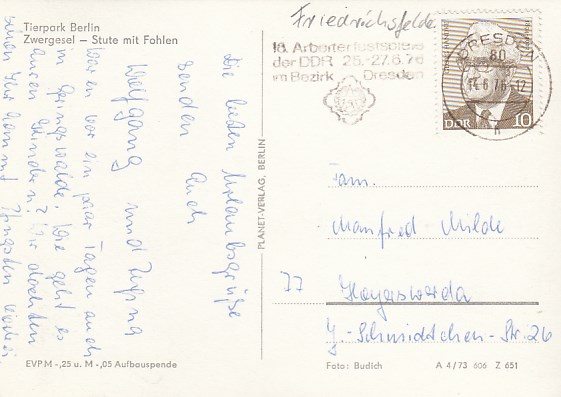 Tierpark Berlin
Zwergesel – Stute mit Fohlen
Friedrichsfelde
16. Arbeiterfestspiele
der DDR 25.-27.6.76
im Bezirk Dresden
DRESDEN
80
14.6.76-12
n
DDR 10
Die besten Urlaubsgrüße
senden Euch
Wolfgang und
Waren vor ein paar Tagen auch
in Springwalde. Wie geht es
euren Kindern? Wir dachten
PLANET-VERLAG, BERLIN
Fam.
Manfred Milde
77
Hoyerswerda
G.-Schmidtchen-Str. 26
EVP M -,25 u. M -,05 Aufbauspende
Foto: Budich
A 4/73 606 Z 651